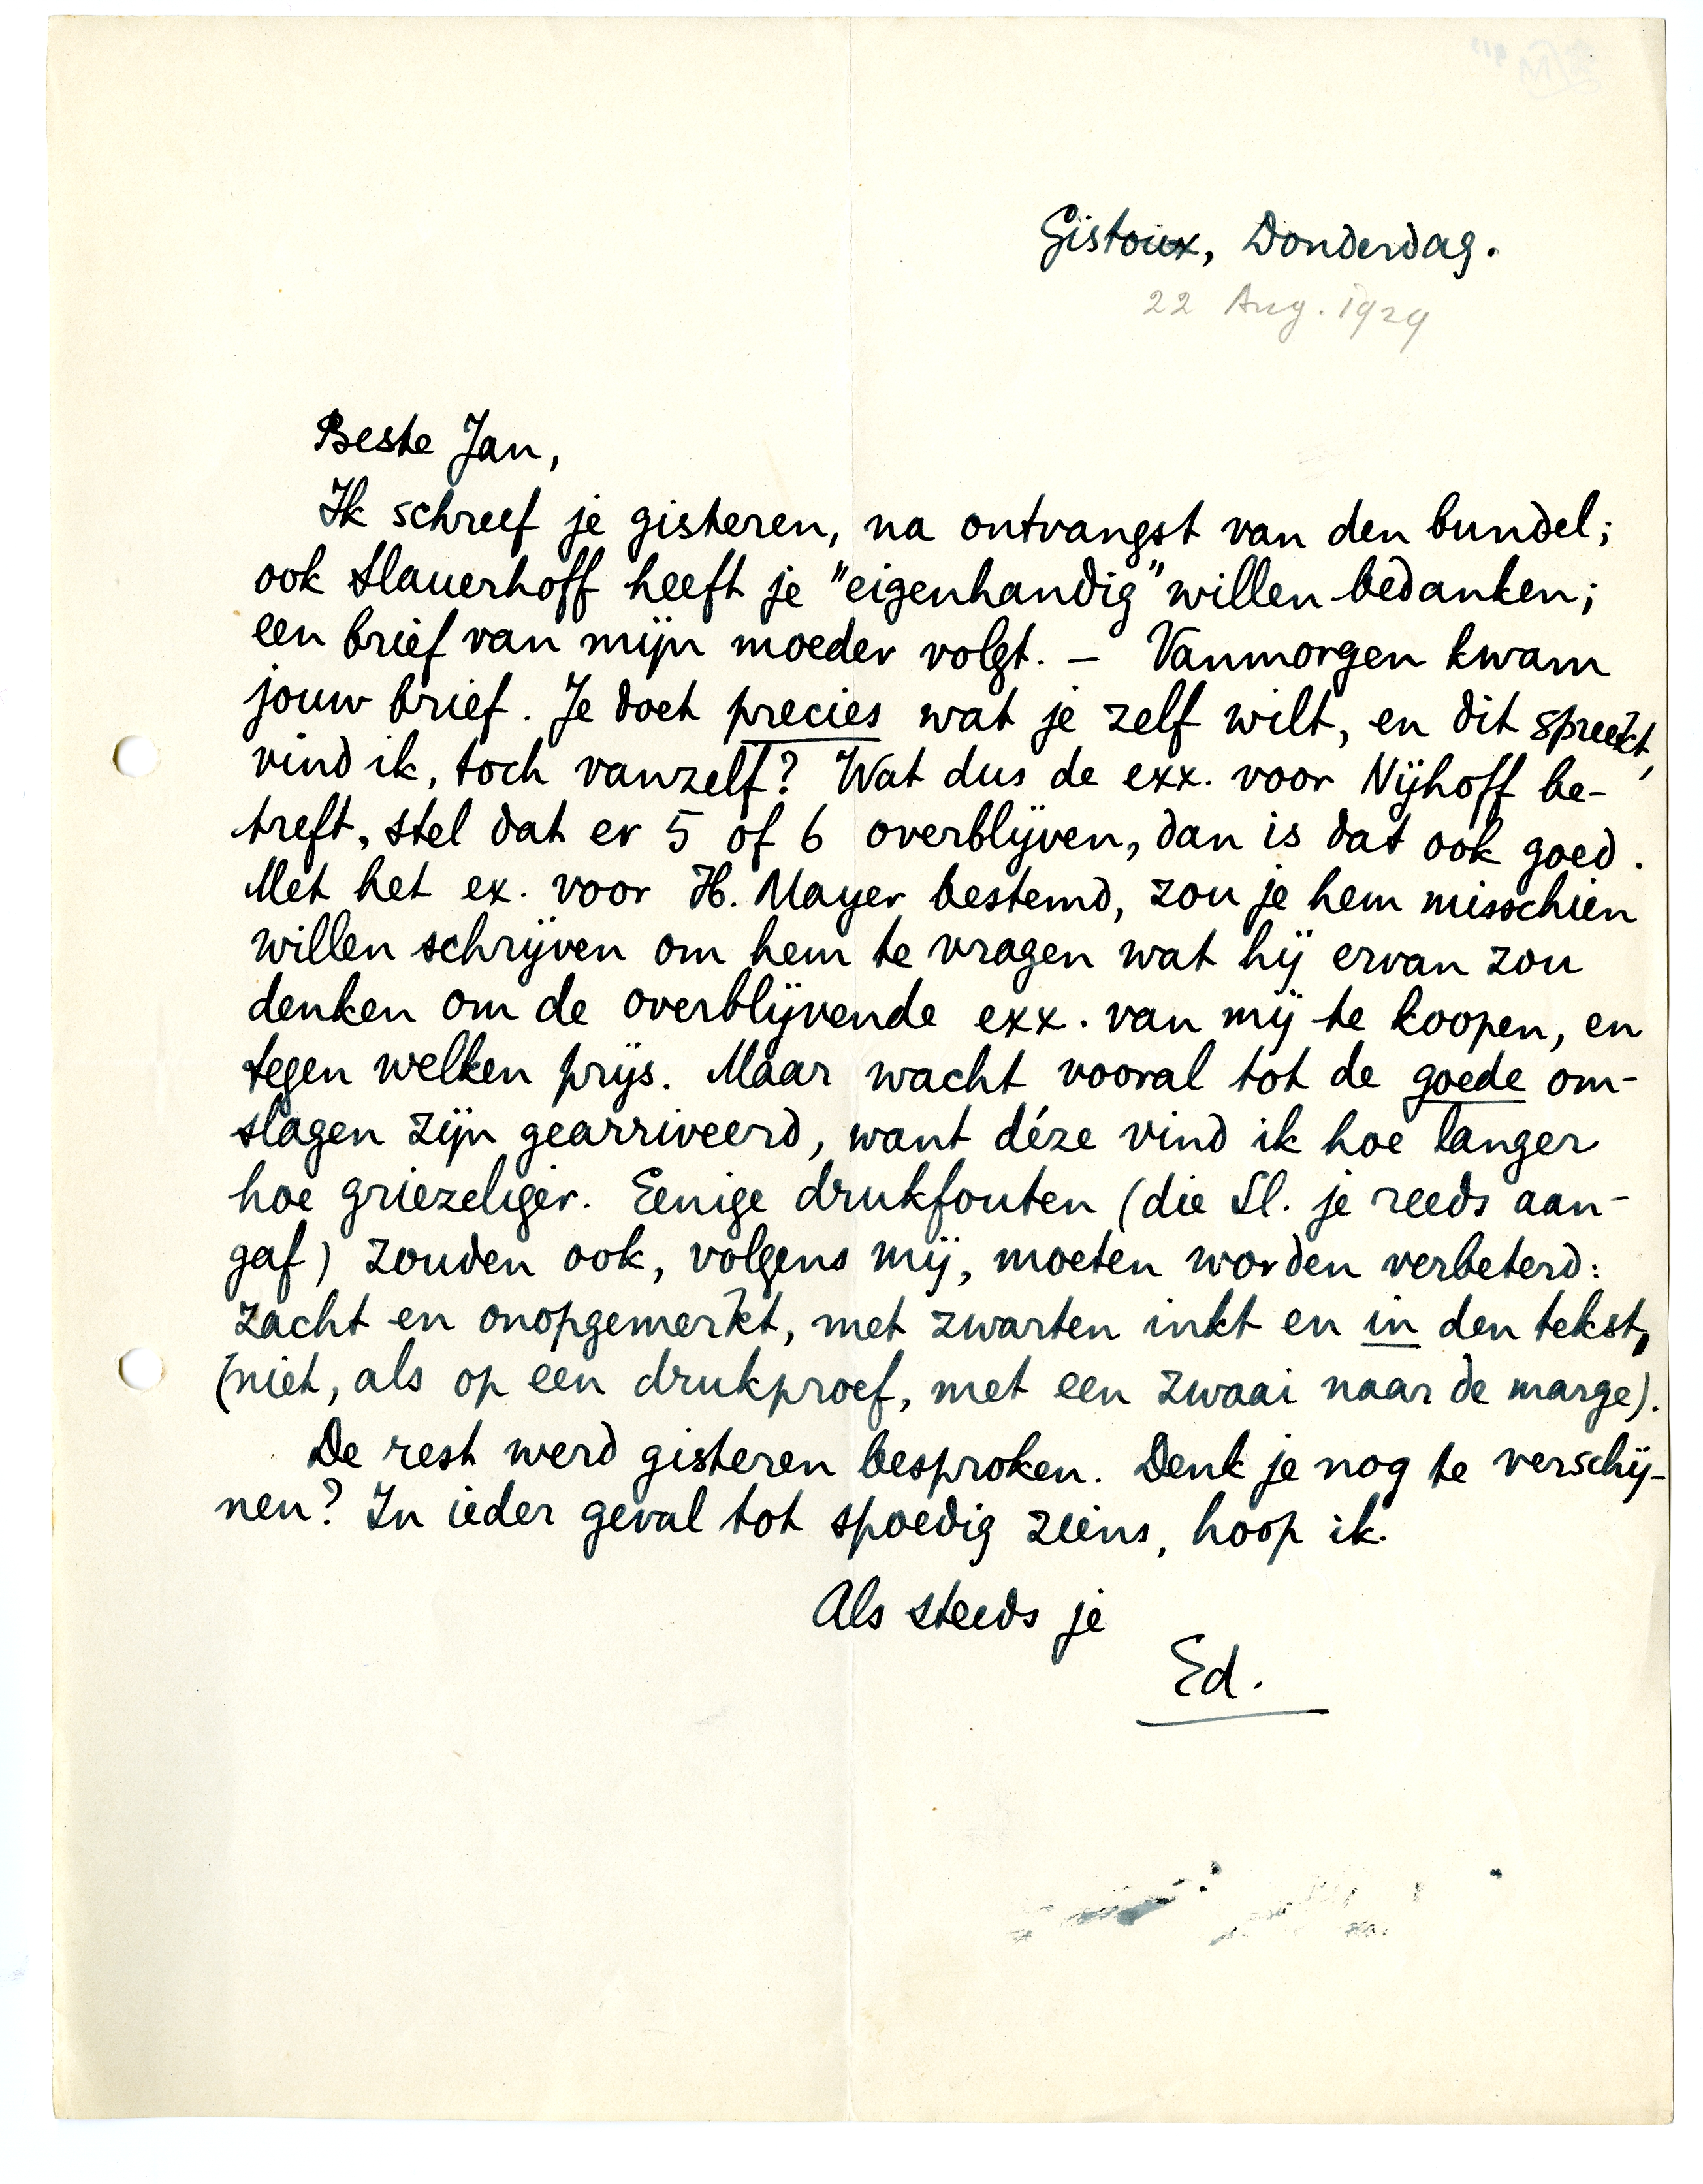 Gistoux, Donderdag.
22 Aug. 1929
Beste Jan,
Ik schreef je gisteren, na ontvangst van den bundel;
ook Slauerhoff heeft je "eigenhandig" willen bedanken;
een brief van mijn moeder volgt. — Vanmorgen kwam
jouw brief. Je doet precies wat je zelf wilt, en dit spreekt,
vind ik, toch vanzelf? Wat dus de exx. voor Nijhoff be-
treft, stel dat er 5 of 6 overblijven, dan is dat ook goed.
Met het ex. voor H. Mayer bestemd, zou je hem misschien
willen schrijven om hem te vragen wat hij ervan zou
denken om de overblijvende exx. van mij te koopen, en
tegen welken prijs. Maar wacht vooral tot de goede om-
slagen zijn gearriveerd, want déze vind ik hoe langer
hoe griezeliger. Eenige drukfouten (die Sl. je reeds aan-
gaf) zouden ook, volgens mij, moeten worden verbeterd:
zacht en onopgemerkt, met zwarten inkt en in den tekst,
(niet, als op een drukproef, met een zwaai naar de marge).
De rest werd gisteren besproken. Denk je nog te verschij-
nen? In ieder geval tot spoedig ziens, hoop ik.
Als steeds je
Ed.